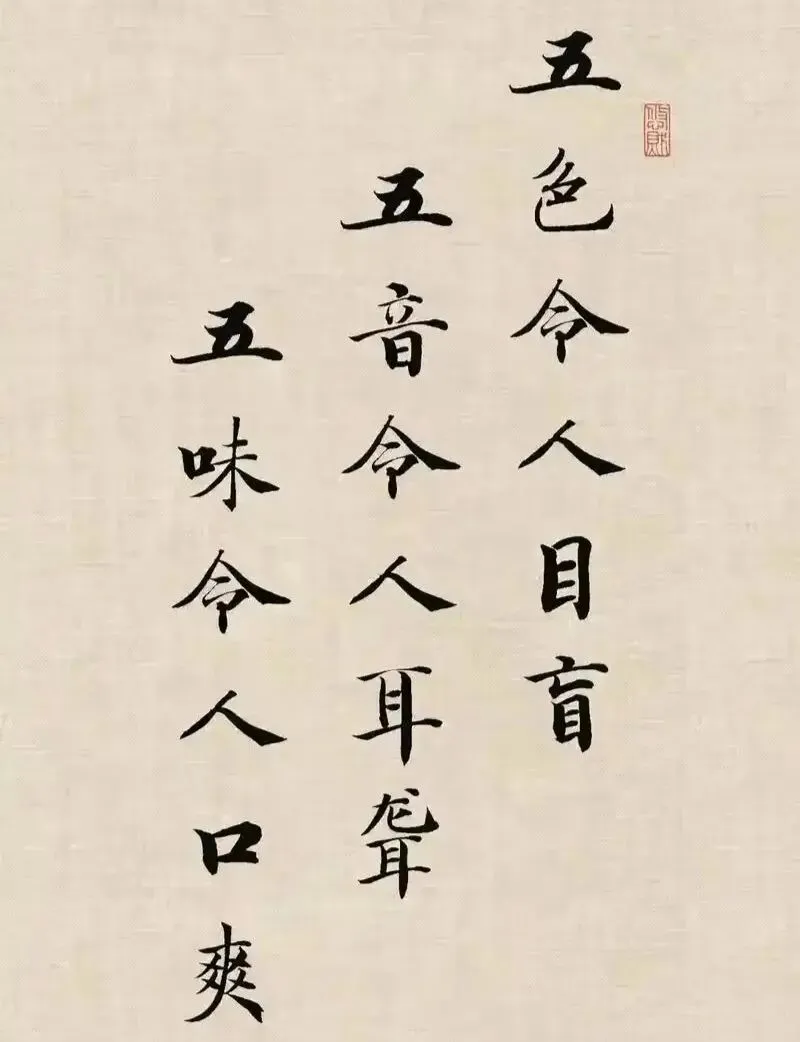 五色令人目盲
五音令人耳聋
五味令人口爽